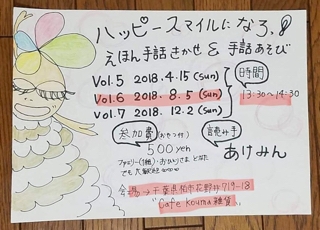 ハッピースマイルになろ
えほん手話きかせ & 手話あそび
Vol.5 2018.4.15 (sun)
Vol.6 2018.8.5 (sun)
Vol.7 2018.12.2 (sun)
時間
13:30〜14:30
参加費(おやつ付)
500yen
ファミリー(1組)・おひとりさま どなた
でも大歓迎
あけみん
会場→千葉県柏市花野井719-18
"Cafe kouma 雑貨"